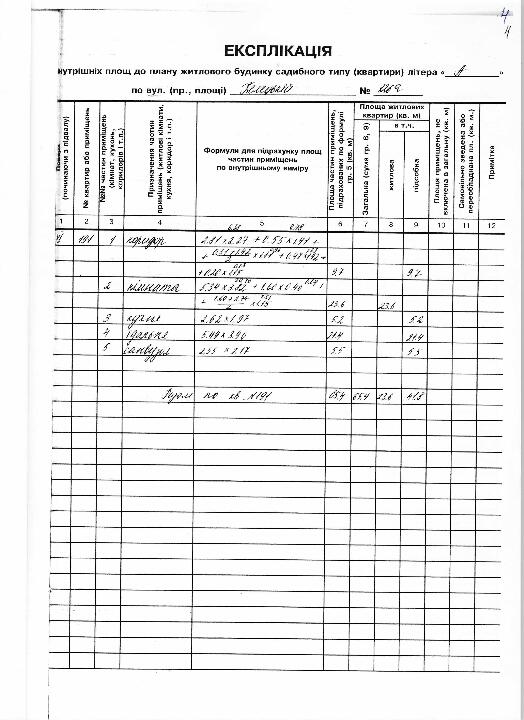 4
4
ЕКСПЛІКАЦІЯ
внутрішніх площ до плану житлового будинку садибного типу (квартири) літера « А »
по вул. (пр., площі) № 106а
(починаючи з підвалу)
№ квартир або приміщень
№№ частин приміщень (кімнат, кухонь, коридорів і т.п.)
Призначення частин приміщень (житлові кімнати, кухня, коридор і т.п.)
Формули для підрахунку площ частин приміщень по внутрішньому виміру
Площа частин приміщень, підрахованих по формулі гр. 5 (кв. м)
Площа житлових квартир (кв. м)
Загальна (сума гр. 8, 9)
в т.ч.
житлова
підсобна
Площа приміщень, не включена в загальну (кв. м)
Самовільно зведена або переобладнана пл. (кв. м.)
Примітка
1 2 3 4 5 6 7 8 9 10 11 12
191 1 коридор 2.81 x 2.27 + 0.55 x 1.97 +
9.7 9.7
2 кімната 5.34 x 3.82 + 1.60 x 0.40
23.6 23.6
3 кухня 2.62 x 1.97 5.2 5.2
4 їдальня 5.49 x 3.90 21.4 21.4
5 санвузл 2.55 x 2.17 5.5 5.5
Разом по кв. №191 65.4 65.4 23.6 41.8